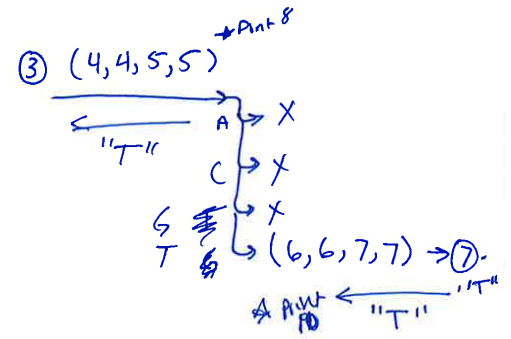 *Print 8
③ (4,4,5,5)
A → X
"T"
C → X
G → X
T → (6,6,7,7) → ⑦.
"T"
* Print 10 ← "T"